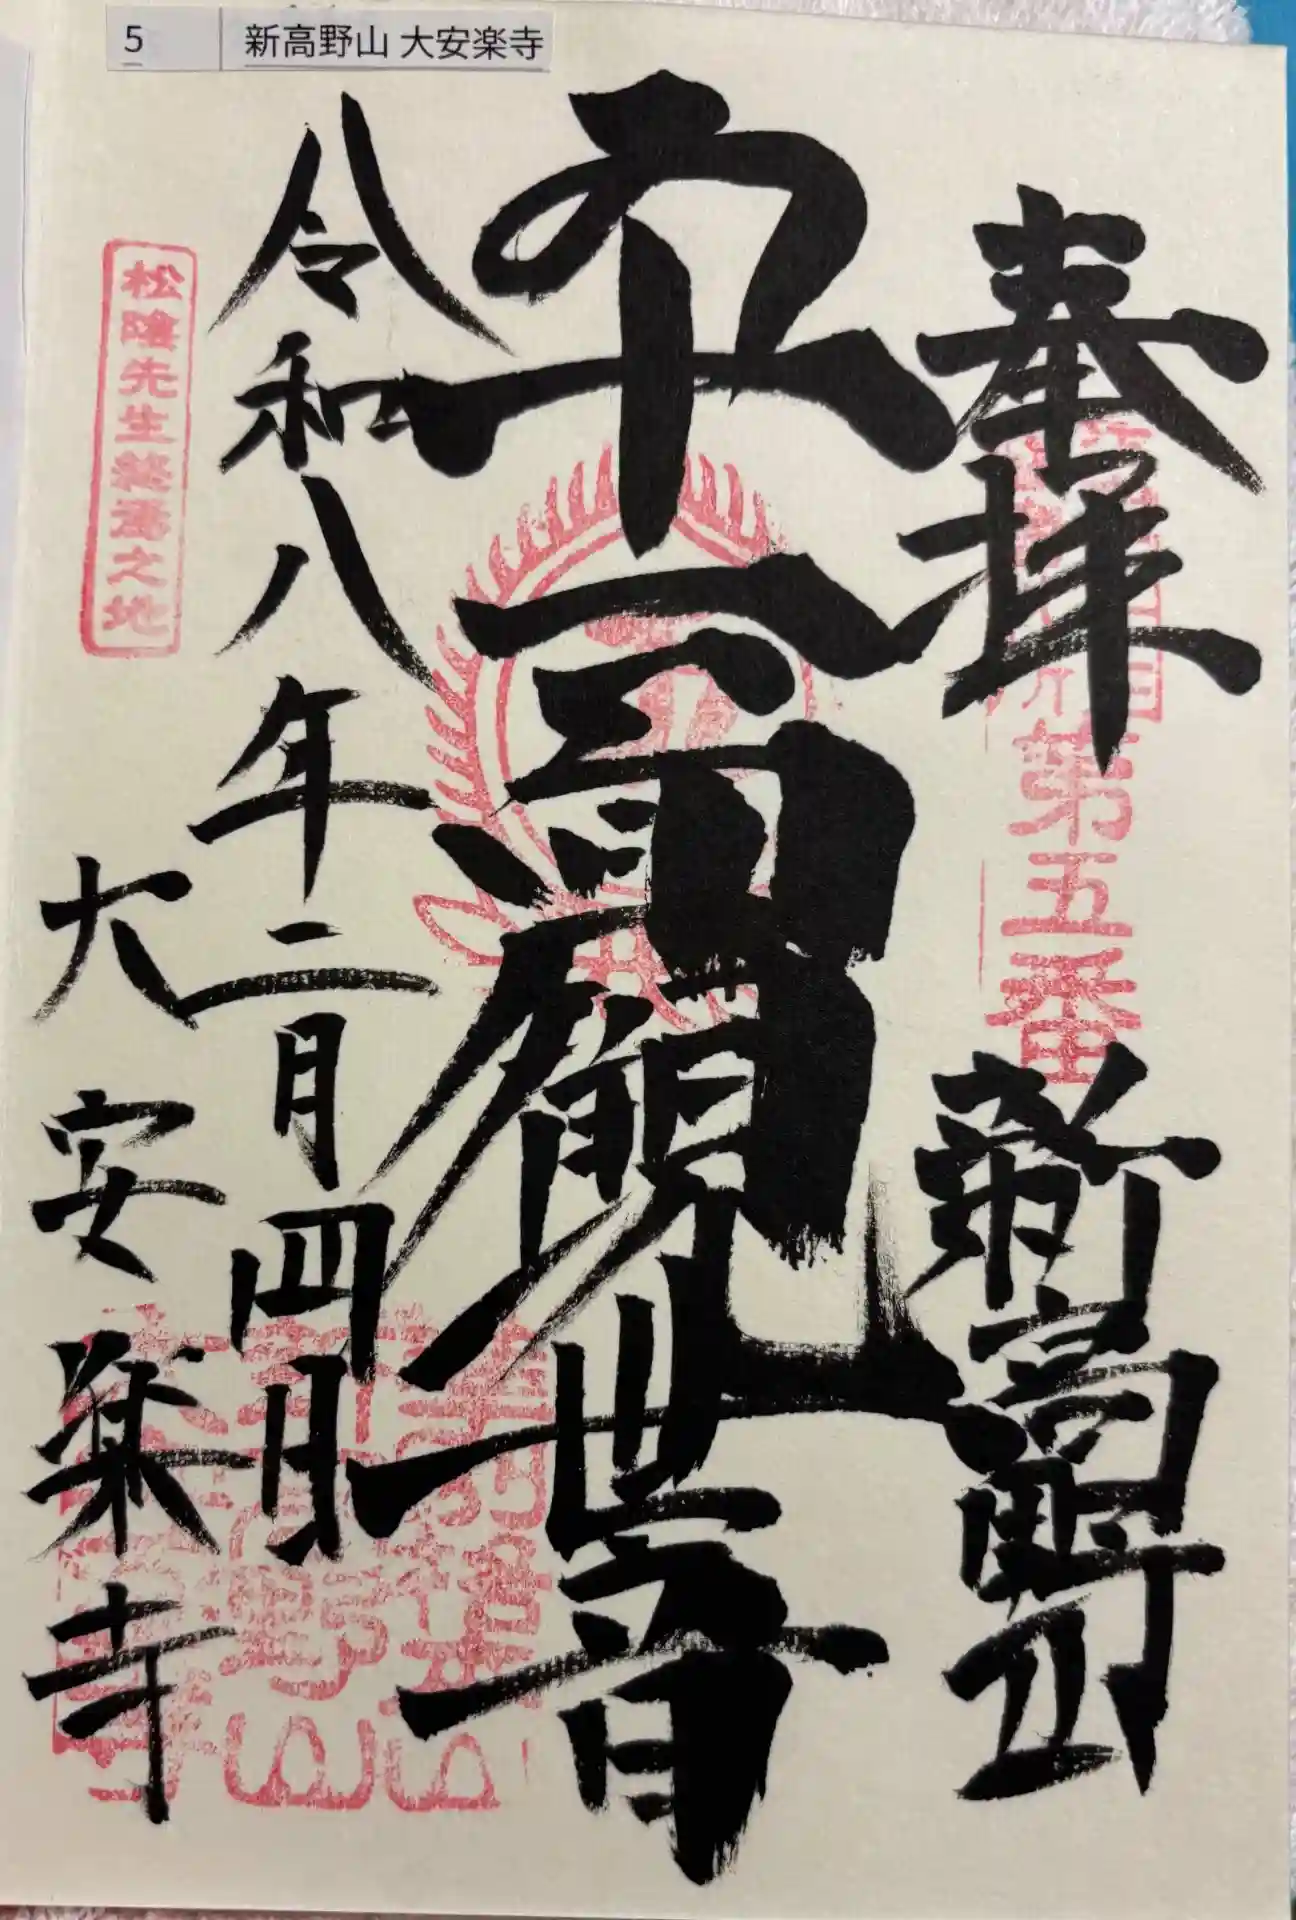 5 新高野山 大安楽寺
奉拝
第五番
新高野山
十一面観世音
令和八年二月四日
松陰先生終焉之地
大安楽寺